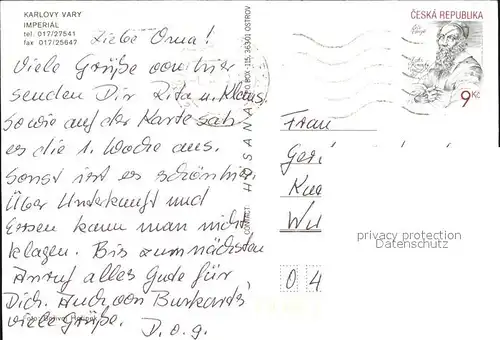 KARLOVY VARY
IMPERIÁL
tel. 017/27541
fax 017/25647
Liebe Oma!
Viele Grüße von hier
senden Dir Rita u. Klaus,
sowie auf der Karte sah
es die 1. Woche aus.
Sonst ist es schön hier.
Über Unterkunft und
Essen kann man nicht
klagen. Bis zum nächsten
Anruf alles Gute für
Dich. Auch von Burkards
viele Grüße. D. o. g.
CONTACT: HOSANA P.O. BOX -115, 36301 OSTROV
ČESKÁ REPUBLIKA
9 Kč
Frau
Geri
Kne
Wu
privacy protection
Datenschutz
0 4